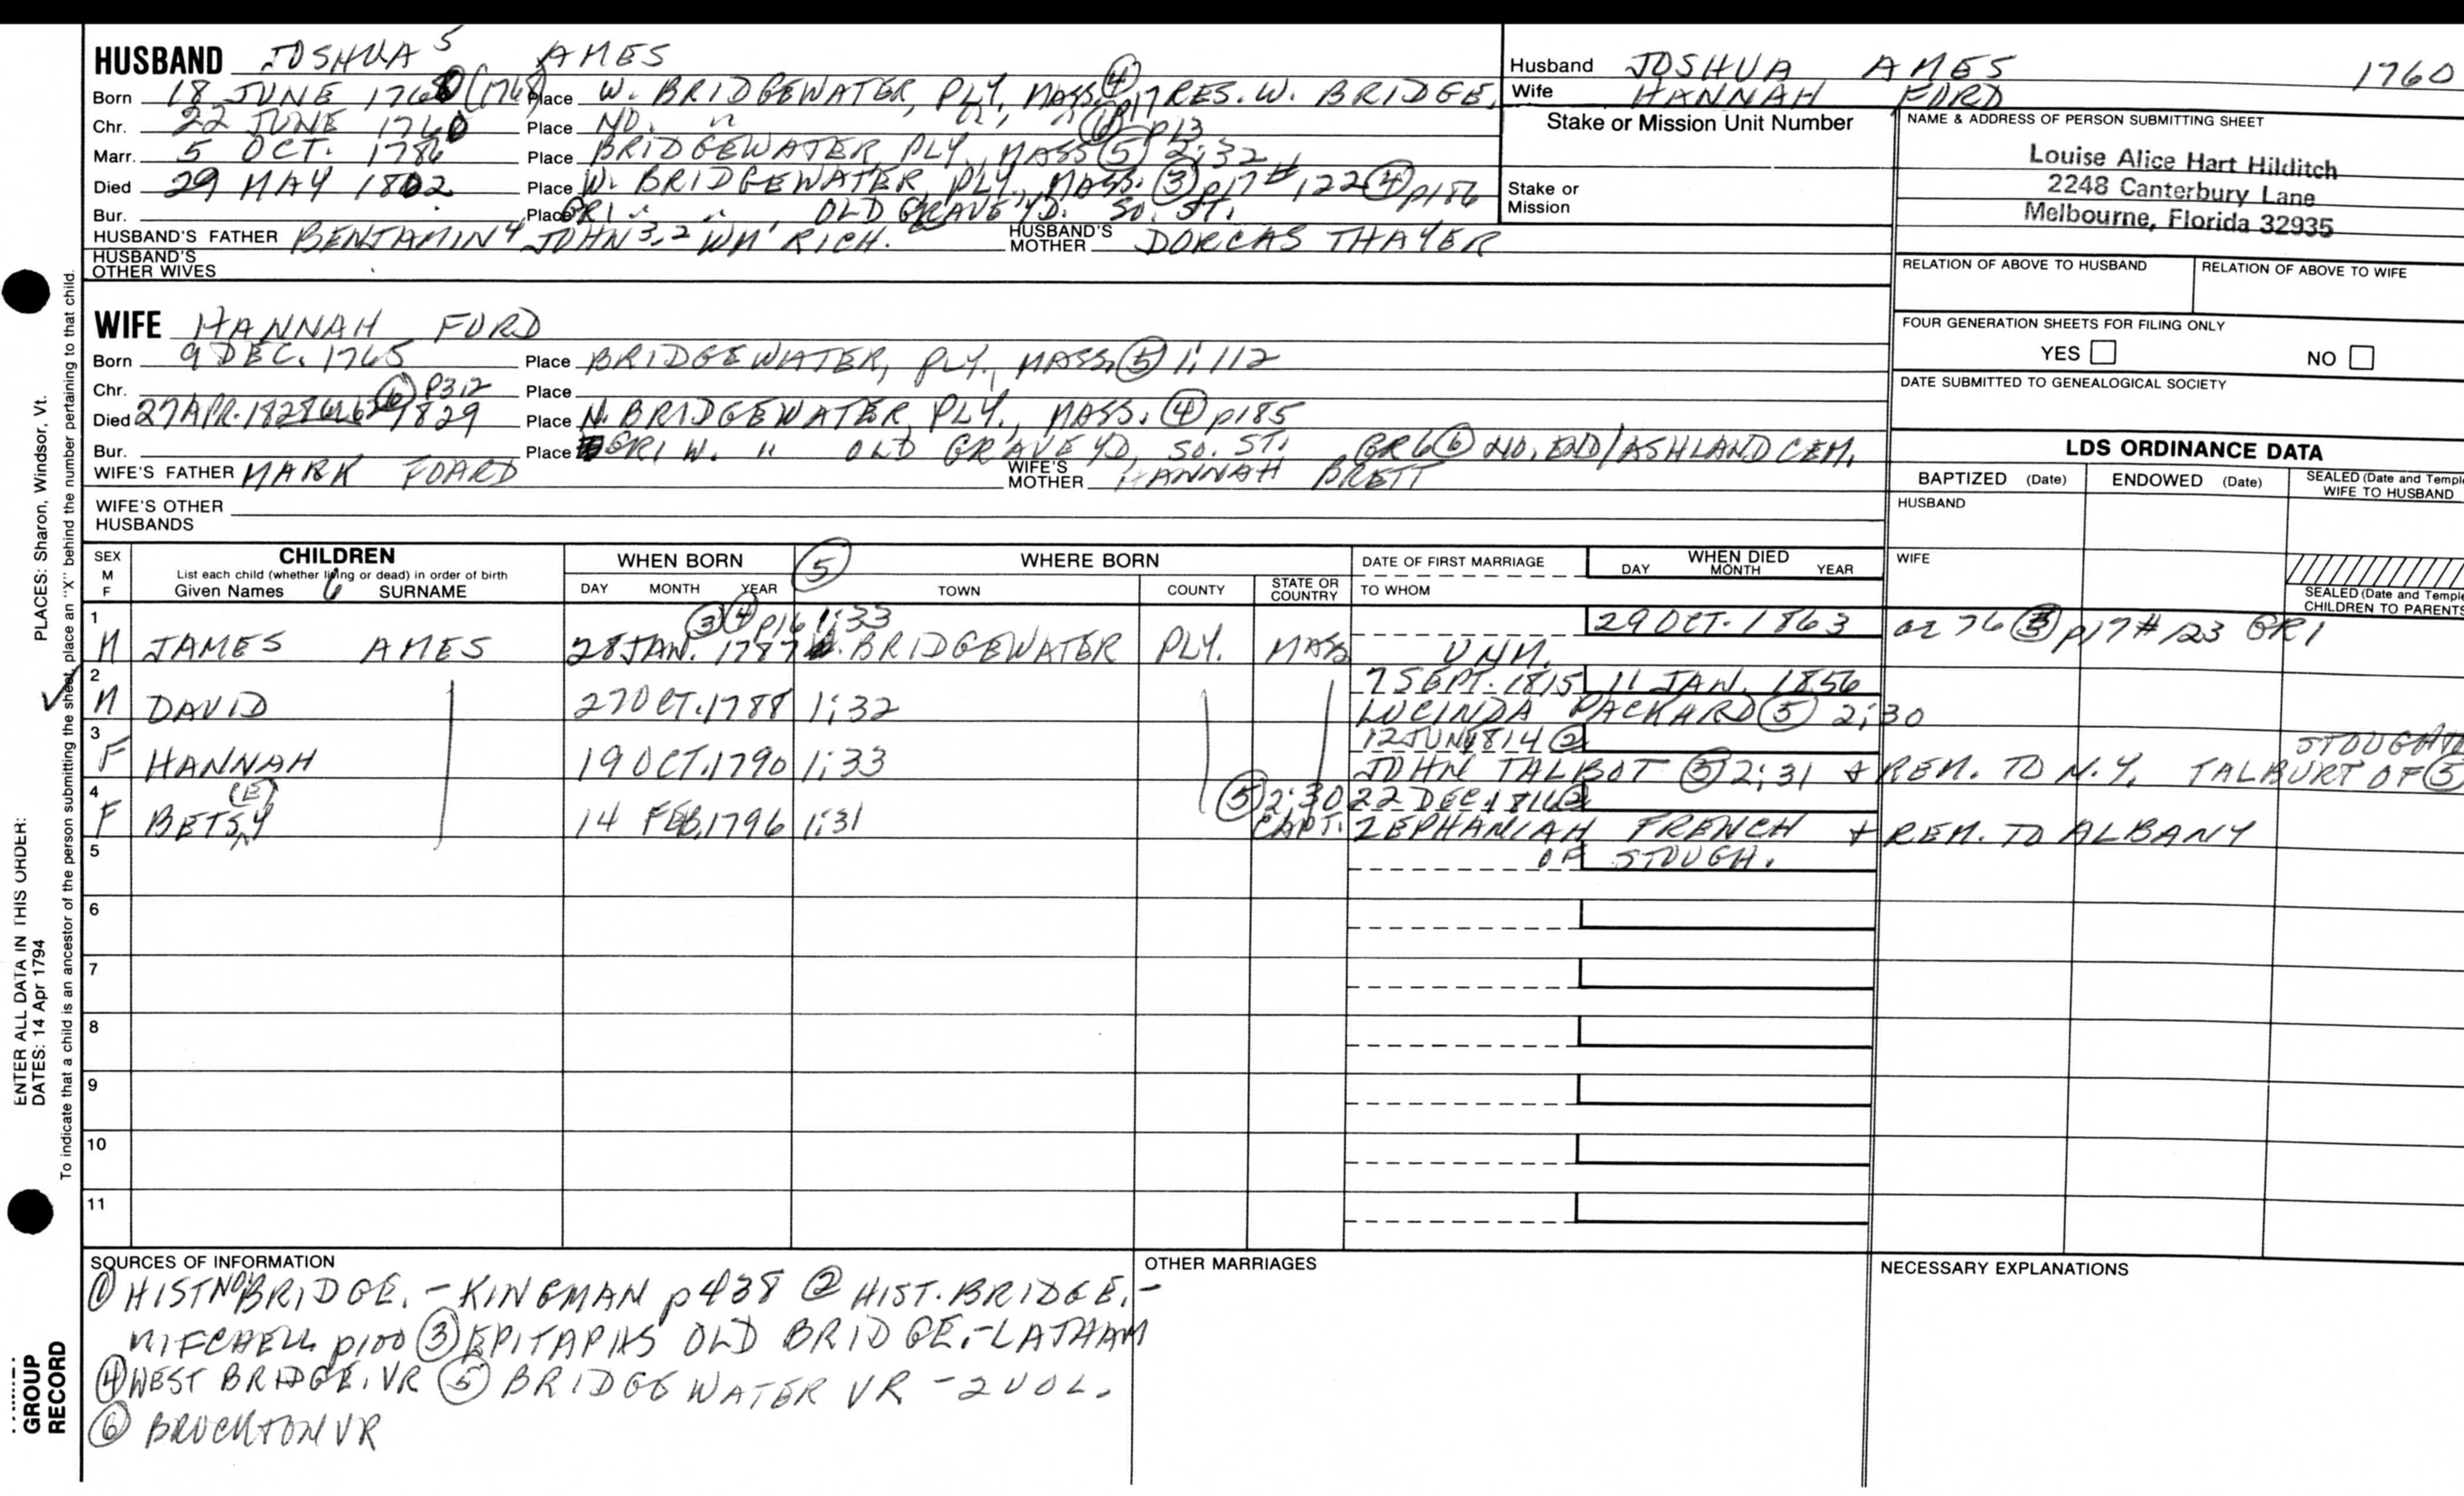 HUSBAND JOSHUA 5 AMES
Born 18 JUNE 1760 (1760) Place W. BRIDGEWATER, PLY, MASS. ④ p17 RES. W. BRIDGE.
Chr. 22 JUNE 1760 Place NO. " " " ⑥ p13
Marr. 5 OCT. 1786 Place BRIDGEWATER, PLY., MASS ⑤ 2;32
Died 29 MAY 1802 Place W. BRIDGEWATER, PLY., MASS. ③ p17 #122 ④ p186
Bur. Place GR1 " " OLD GRAVE YD. SO. ST.
HUSBAND'S FATHER BENJAMIN 4 JOHN 3,2 WM' RICH. HUSBAND'S MOTHER DORCAS THAYER
HUSBAND'S OTHER WIVES
WIFE HANNAH FORD
Born 9 DEC. 1765 Place BRIDGEWATER, PLY., MASS ⑤ 1;112
Chr. ⑥ P312 Place
Died 27 APR. 1828 1829 Place N. BRIDGEWATER, PLY., MASS. ④ p185
Bur. Place GR1 W. " OLD GRAVE YD, SO. ST. GR6 ⑥ NO. END/ASHLAND CEM.
WIFE'S FATHER MARK FOARD WIFE'S MOTHER HANNAH BRETT
WIFE'S OTHER HUSBANDS
Husband JOSHUA AMES 1760
Wife HANNAH FORD
Stake or Mission Unit Number
Stake or Mission
NAME & ADDRESS OF PERSON SUBMITTING SHEET
Louise Alice Hart Hilditch
2248 Canterbury Lane
Melbourne, Florida 32935
RELATION OF ABOVE TO HUSBAND RELATION OF ABOVE TO WIFE
FOUR GENERATION SHEETS FOR FILING ONLY
YES NO
DATE SUBMITTED TO GENEALOGICAL SOCIETY
LDS ORDINANCE DATA
BAPTIZED (Date) ENDOWED (Date) SEALED (Date and Templ
WIFE TO HUSBAND
HUSBAND
WIFE
SEALED (Date and Templ
CHILDREN TO PARENTS
SEX M F CHILDREN WHEN BORN ⑤ WHERE BORN DATE OF FIRST MARRIAGE WHEN DIED
List each child (whether living or dead) in order of birth
Given Names 6 SURNAME DAY MONTH YEAR TOWN COUNTY STATE OR COUNTRY TO WHOM DAY MONTH YEAR
1 ③ ④ p16 1;33 29 OCT. 1863 az 76 ③ p17 #123 GR1
M JAMES AMES 28 JAN. 1787 W. BRIDGEWATER PLY. MASS UNM.
2 7 SEPT. 1815 11 JAN. 1856
M DAVID 27 OCT. 1788 1;32 LUCINDA PACKARD ⑤ 2;30
3 12 JUN 1814 ② STOUGHTN
F HANNAH 19 OCT. 1790 1;33 JOHN TALBOT ⑤ 2;31 + REM. TO N.Y. TALBURT OF ⑤
4 (E) ⑤ 2;30 22 DEC. 1816 ②
F BETSY 14 FEB. 1796 1;31 CAPT. ZEPHANIAH FRENCH + REM. TO ALBANY
5 OF STOUGH.
6
7
8
9
10
11
SOURCES OF INFORMATION
① HIST NO. BRIDGE. - KINGMAN p438 ② HIST. BRIDGE. -
MITCHELL p100 ③ EPITAPHS OLD BRIDGE. - LATHAM
④ WEST BRIDGE. VR ⑤ BRIDGEWATER VR - 2 VOL.
⑥ BROCKTON VR
OTHER MARRIAGES
NECESSARY EXPLANATIONS
ENTER ALL DATA IN THIS ORDER:
DATES: 14 Apr 1794 PLACES: Sharon, Windsor, Vt.
To indicate that a child is an ancestor of the person submitting the sheet, place an "X" behind the number pertaining to that child.
GROUP
RECORD